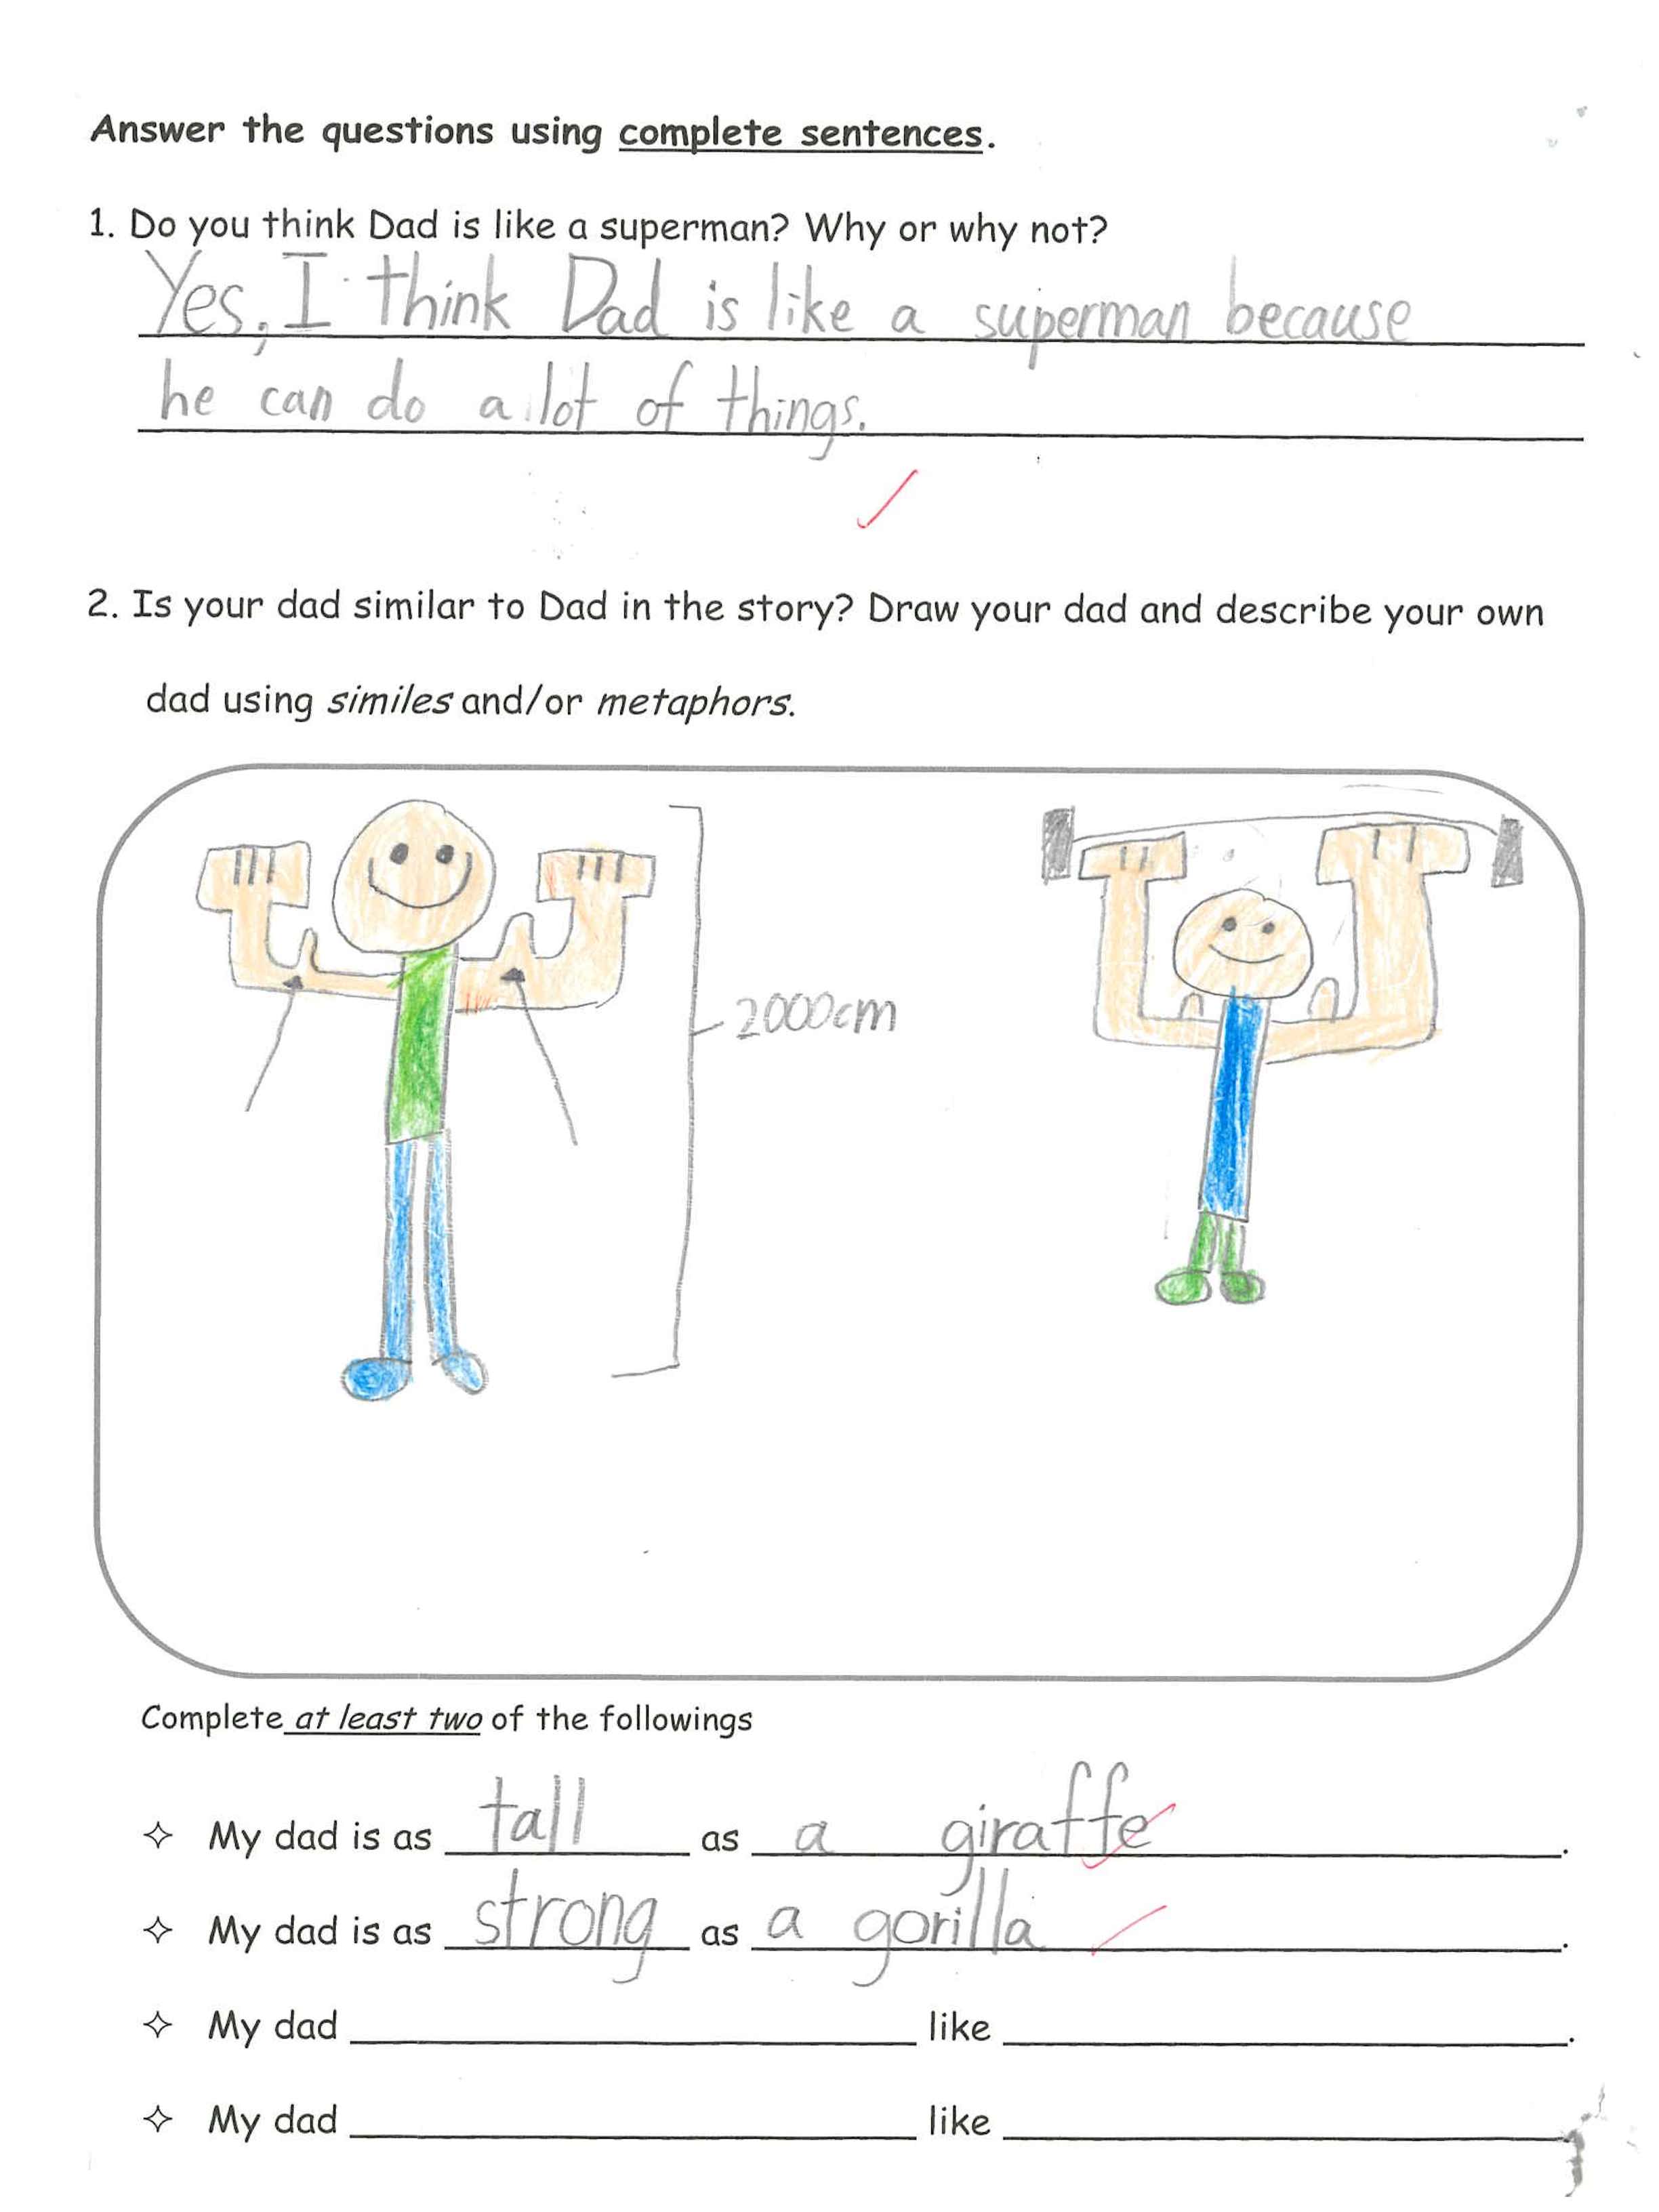 Answer the questions using complete sentences.
1. Do you think Dad is like a superman? Why or why not?
Yes, I think Dad is like a superman because
he can do a lot of things.
2. Is your dad similar to Dad in the story? Draw your dad and describe your own
dad using similes and/or metaphors.
2000cm
Complete at least two of the followings
✧ My dad is as tall as a giraffe.
✧ My dad is as strong as a gorilla.
✧ My dad ____________ like ____________.
✧ My dad ____________ like ____________.